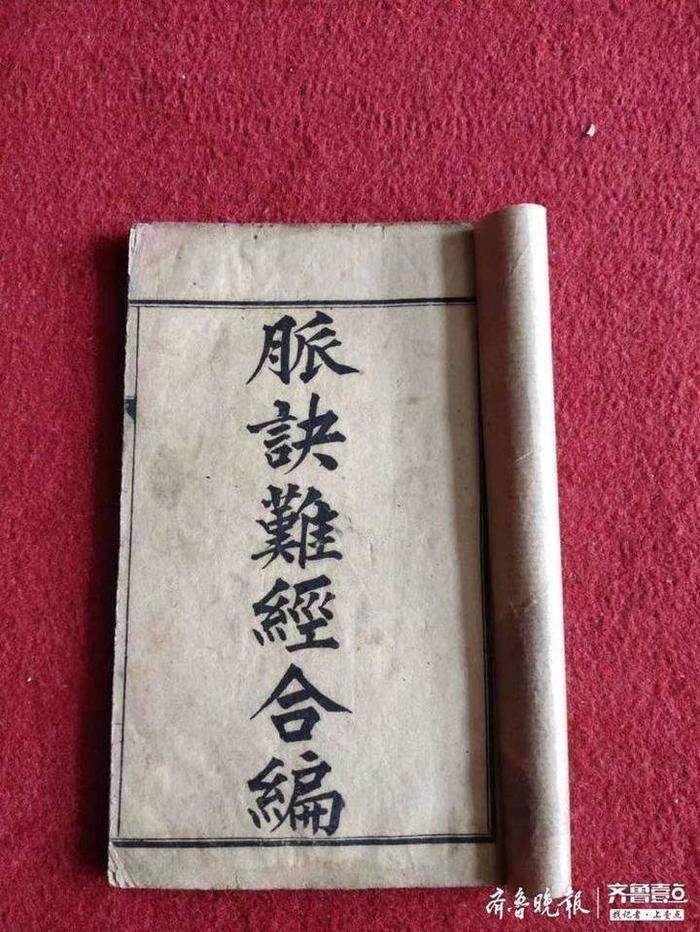 脈訣難經合編
齐鲁晚报
齐鲁壹点
找记者·上壹点